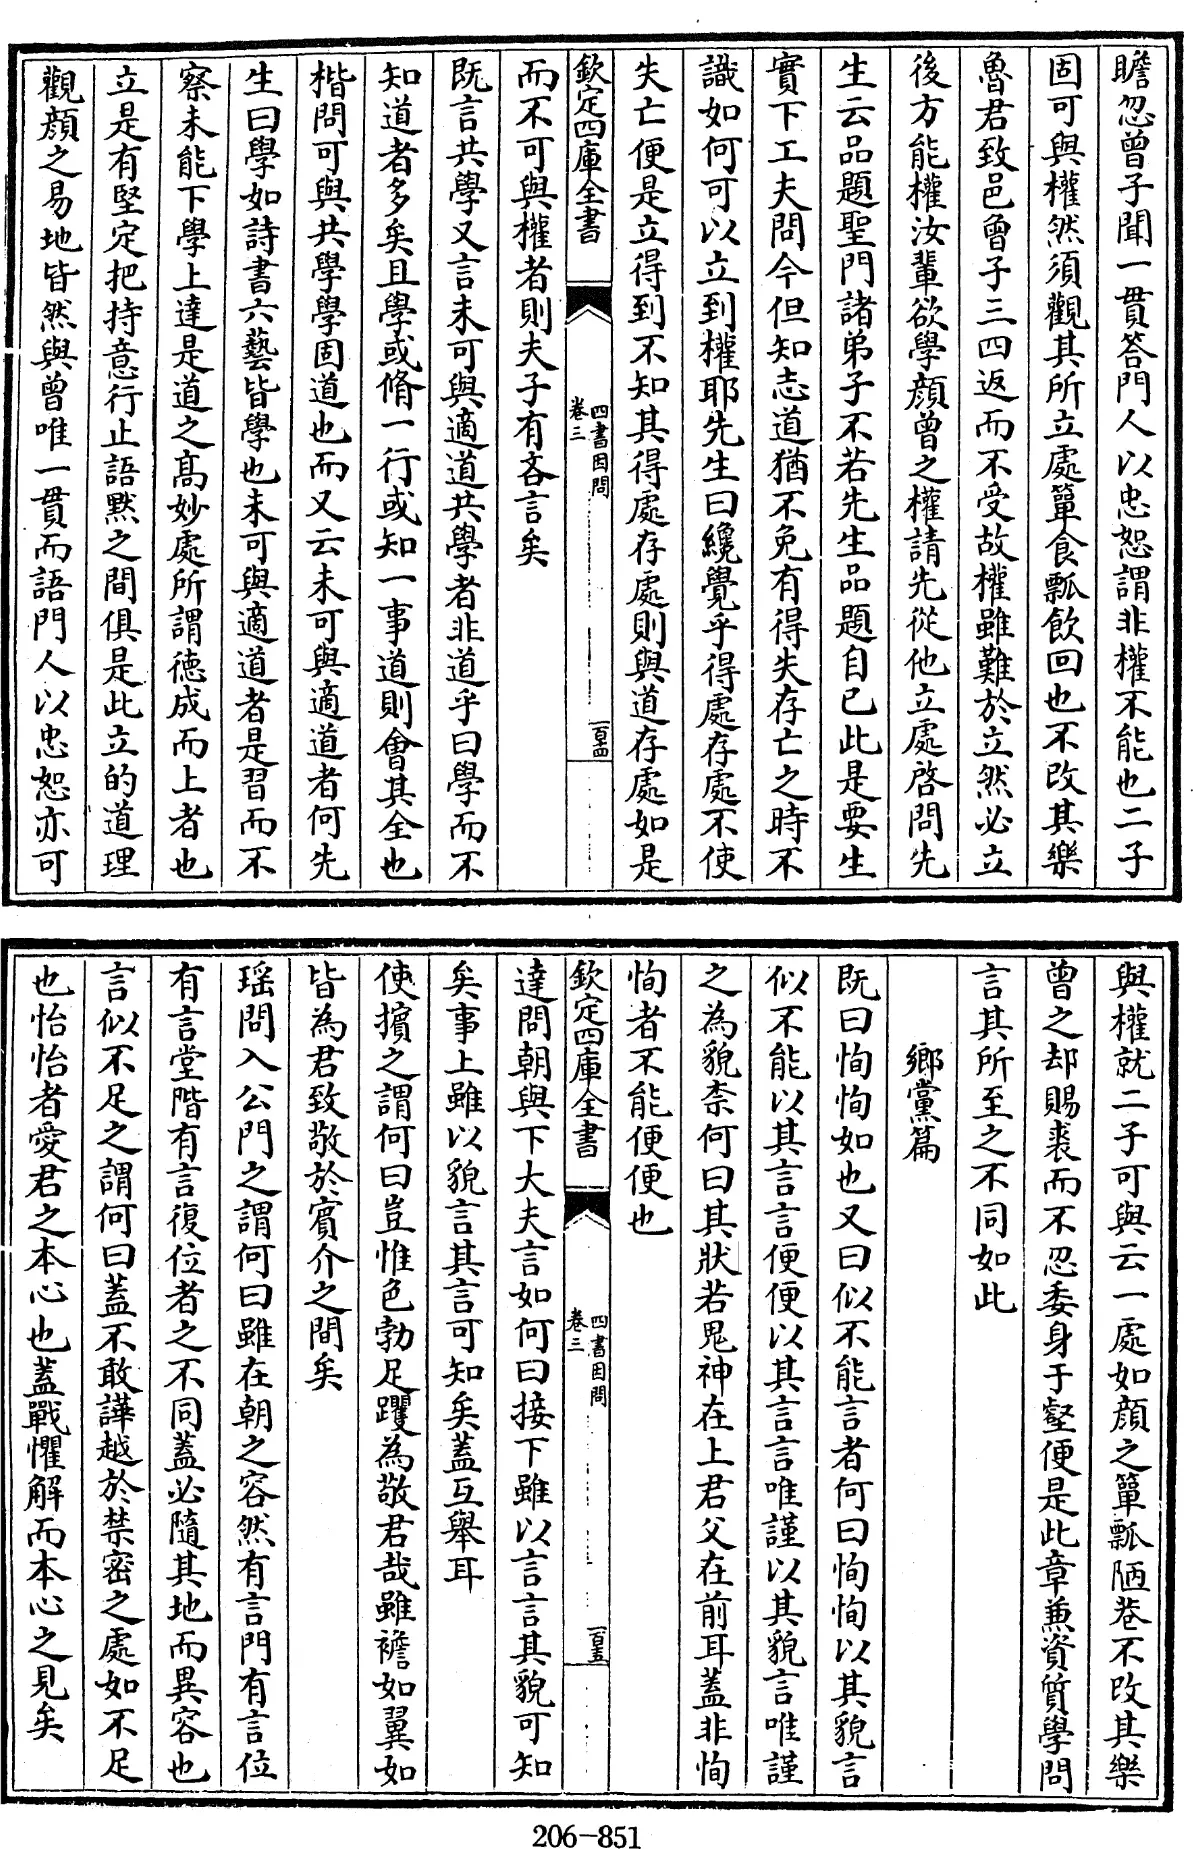 瞻忽曾子聞一貫答門人以忠恕謂非權不能也二子
固可與權然須觀其所立處簞食瓢飲回也不改其樂
魯君致邑曾子三四返而不受故權雖難於立然必立
後方能權汝輩欲學顔曾之權請先從他立處啓問先
生云品題聖門諸弟子不若先生品題自己此是要生
實下工夫問今但知志道猶不免有得失存亡之時不
識如何可以立到權耶先生曰纔覺乎得處存處不使
失亡便是立得到不知其得處存處則與道存處如是
欽定四庫全書
四書因問
卷三
一百四
而不可與權者則夫子有吝言矣
既言共學又言未可與適道共學者非道乎曰學而不
知道者多矣且學或脩一行或知一事道則會其全也
楷問可與共學學固道也而又云未可與適道者何先
生曰學如詩書六藝皆學也未可與適道者是習而不
察未能下學上達是道之髙妙處所謂德成而上者也
立是有堅定把持意行止語黙之間俱是此立的道理
觀顔之易地皆然與曾唯一貫而語門人以忠恕亦可
與權就二子可與云一處如顔之簞瓢陋巷不改其樂
曾之却賜裘而不忍委身于壑便是此章兼資質學問
言其所至之不同如此
鄉黨篇
既曰恂恂如也又曰似不能言者何曰恂恂以其貌言
似不能以其言言便便以其言言唯謹以其貌言唯謹
之為貌柰何曰其狀若鬼神在上君父在前耳蓋非恂
恂者不能便便也
欽定四庫全書
四書因問
卷三
一百五
達問朝與下大夫言如何曰接下雖以言言其貌可知
矣事上雖以貌言其言可知矣蓋互舉耳
使擯之謂何曰豈惟色勃足躩為敬君哉雖襜如翼如
皆為君致敬於賓介之間矣
瑶問入公門之謂何曰雖在朝之容然有言門有言位
有言堂階有言復位者之不同蓋必隨其地而異容也
言似不足之謂何曰蓋不敢譁越於禁密之處如不足
也怡怡者愛君之本心也蓋戰懼解而本心之見矣
206-851